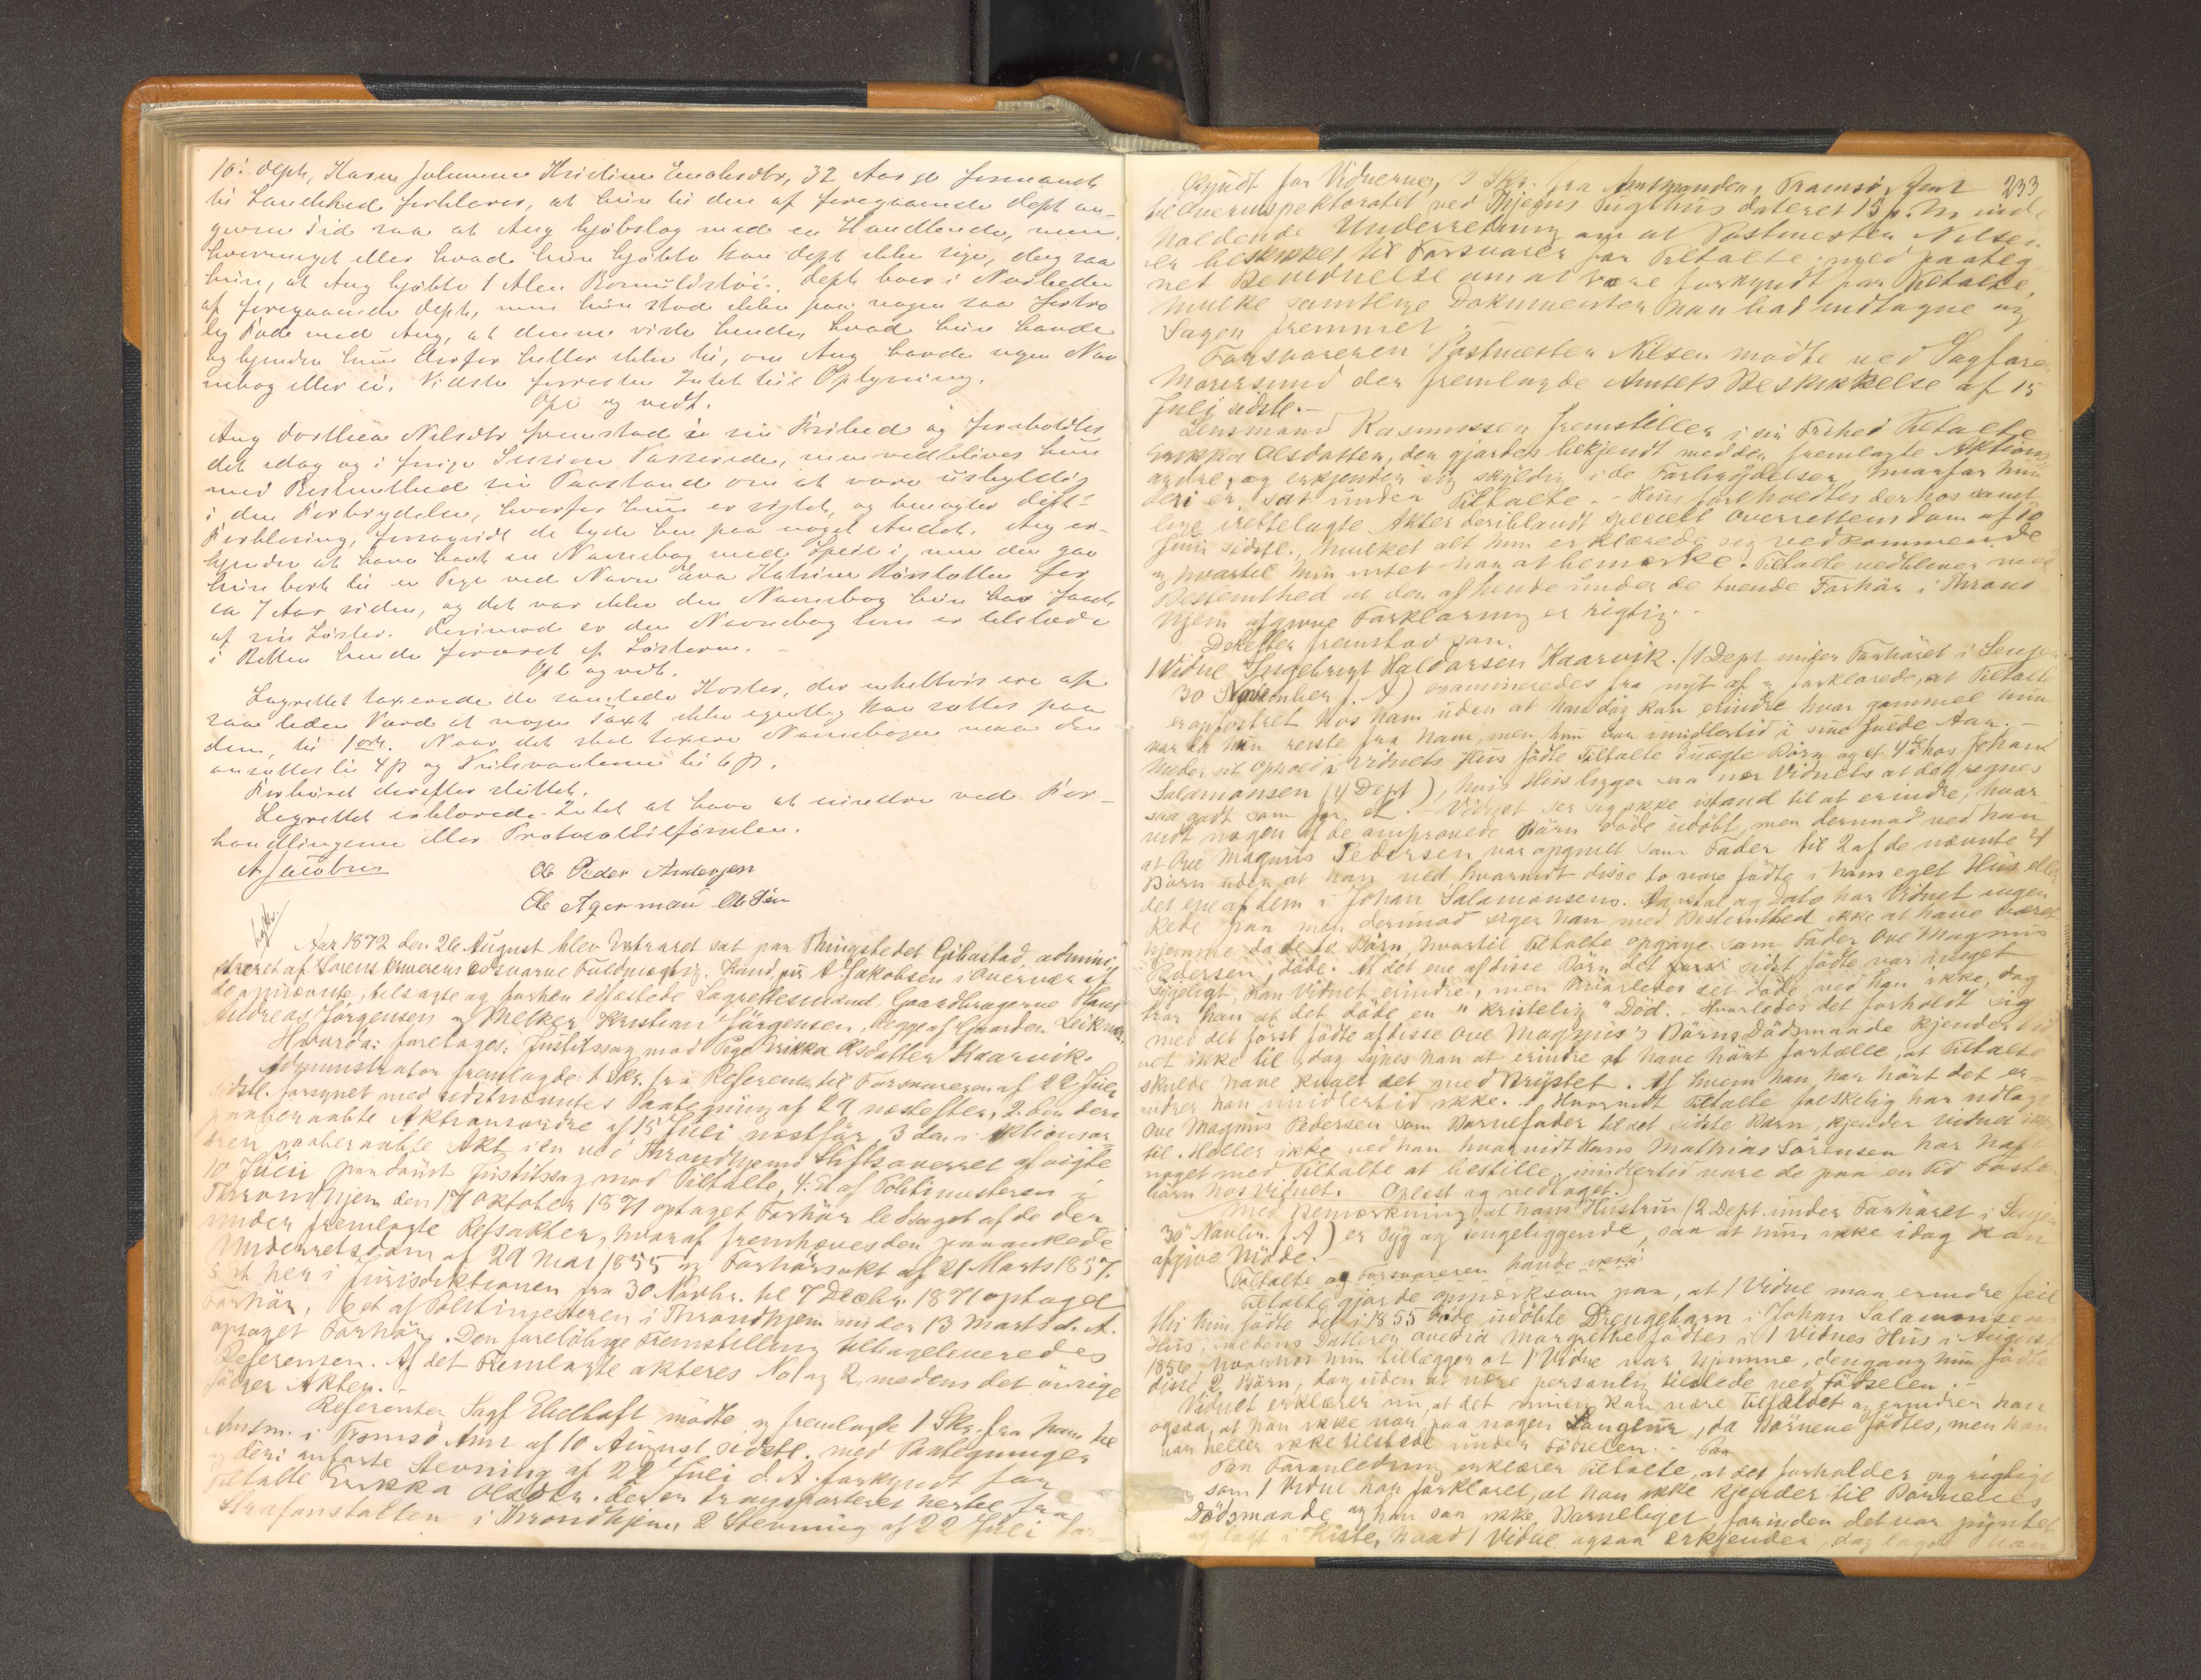 10: Dept, Karen Johanna Kristine Enoksdtr, 32 Aar gl formanet
til Sandhed forklarer, at hun til den af foregaaende Dept an-
given Tid saa at Ang kjøbslog med en Handlende, men
hvormeget eller hvad hun kjøbte kan Dept ikke sige, dog saa
hun, at Ang kjøbte 1 Alen Bomuldstøi. Dept boer i Nærheden
af foregaaende Dept, men hun stod ikke paa nogen saa fortro
lig Fod med Ang, at denne viste hende, hvad hun havde
og kjender hun derfor heller ikke til, om Ang havde nogen Nav
nebog eller ei. Vidste forresten Intet til Oplysning.
Opl og vedt.
Ang Dorthea Nilsdtr fremstod i sin Frihed og foreholdtes
det idag og i forrige Session Passerede, men vedbliver hun
med Bestemthed sin Paastand om at være uskyldig
i den Forbrydelse, hvorfor hun er sigtet, og benægter Dept's
Forklaring, forsaavidt de tyde hen paa noget Andet. Ang er-
kjender at have havt en Navnebog med Speil i, men den gav
hun bort til en Pige ved Navn Eva Katrine Hansdatter for
ca 7 Aar siden, og det var ikke den Navnebog hun har faaet
af sin Søster. Derimod er den Navnebog som er tilstede
i Retten hende foræret af Søsteren. –
Opl og vedt.
Lagrettet taxerede de samtlede Koster, der uheldvis ere af
saa liden Værd at nogen Taxt ikke egentlig kan sættes paa
dem, til 1 ort. Naar det skal taxere Navnebogen maa den
ansættes til 4 ß og til 6 ß.
Forhøret derefter sluttet.
Lagrettet erklærede Intet at have at erindre ved For-
handlingerne eller Protocoltilførselen.
A Jacobsen Ole Peder Andersen
Ole Agerman Olsen
Aar 1872 den 26 August blev Extraret sat paa Thingstedet Gibostad, admini-
streret af Sorenskriverens edsvorne Fuldmægtig. Kand. jur A. Jakobsen i Overvær af
de opnævnte, tilsagte og forhen edfæstede Lagrettesmænd, Gaardbrugerne Hans
Andreas Jørgensen og Melker Kristian Jørgensen, begge af Gaarden Leiknes.
Hvorda: foretages: Justitssag mod Pige Erikka Olsdatter Kaarvik.
Administrator fremlagde: 1 Skr. fra Referenten til Forsvareren af 22 Juli
sidstl. forsynet med sidstnævntes Paategning af 29 næstefter, 2. den deri
paaberaabte Aktionsordre af 15 Juli næstfør, 3 den i Aktionsor
dren paaberaabte Akt i en ved Throndhjems Stiftsoverret afvigte
10 Juni paadømt Justitssag mod Tiltalte, 4. Et af Politimesteren i
Throndhjem den 17 Oktober 1871 optaget Forhør ledsaget af de der
under fremlagte Retsakter, hvoraf fremhæves den paaankede
Underretsdom af 29 Mai 1855 og Forhørsakt af 21 Marts 1857.
5 et her i Jurisdiktionen fra 30 Novbr. til 7 Decbr. 1871 optaget
Forhør, 6 et af Politimesteren i Throndhjem under 13 Marts d. A.
optaget Forhør. Den foreløbige Fremstilling tilbageleveredes
Referenten. Af det Fremlagte akteres No 1 og 2, medens det øvrige
følger Akten. –
Referenten Sagf Ebeltoft mødte og fremlagde 1 Skr. fra ham til
Amtm. i Tromsø Amt af 10 August sidstl. med Paategninger
og deri anførte Stevning af 22 Juli d. A. forkyndt for
Tiltalte Erikka Olsdtr. der er transporteret hertil fra
Strafanstalten i Throndhjem, 2 Stevning af 22 Juli for-
233
kyndt for Vidnerne, 3 Skr. fra Amtmanden i Tromsø Amt
til Overinspektoratet ved Thjems Tugthus dateret 15 p. M. inde
holdende Underretning om at Postmester Nilsen
er beskikket til Forsvarer for Tiltalte; med paateg
net Bevidnelse om at være forkyndt for Tiltalte,
hvilke samtlige Dokumenter han bad indtagne og
Sagen fremmet. –
Forsvareren Postmester Nilsen mødte ved Sagfører
Morersund der fremlagde Amtets Beskikkelse af 15
Juli sidste. –
Lensmand Rasmussen fremstiller i sin Frihed Tiltalte
Erikka Olsdatter, der gjordes bekjendt med den fremlagte Aktions
ordre og erkjender sig skyldig i de Forbrydelser, hvorfor hun
deri er sat under Tiltalte. – Hun foreholdtes derhos samt
lige irettelagte Akter deriblandt specielt Overrettens Dom af 10
Juni sidstl., hvilket alt hun erklærede sig vedkommende
og hvortil hun intet har at bemærke. Tiltalte vedbliver med
Bestemthed at den af hende under de tvende Forhør i Thrond
hjem afgivne Forklaring er rigtig. –
Derefter fremstod som
1 Vidne Ingebrigt Haldorsen Kaarvik. (1 Dept under Forhøret i Senjen
30 November f. A) examineredes fra nyt af og forklarede, at Tiltalte
er opfostret hos ham uden at han dog kan erindre hvor gammel hun
var da hun reiste fra ham, men hun var imidlertid i sine fulde Aar. –
Under sit Ophold i Vidnets Hus fødte Tiltalte 3 uægte Børn og et 4de hos Johan
Salamonsen (4 Dept), hvis Hus ligger saa nær Vidnets at det regnes
saa godt som for et. – Vidnet ser sig ikke istand til at erindre, hvor
vidt nogen af de omprøvede Børn døde udøbt, men derimod ved han
at Ove Magnus Pedersen var opgivet som Fader til 2 af de nævnte 4
Børn uden at han ved hvorvidt disse to vare fødte i hans eget Hus eller
det ene af dem i Johan Salamonsens. Aarstal og Dato har Vidnet ingen
Rede paa men derimod siger han med Bestemthed ikke at have været
hjemme da de to Børn, hvortil Tiltalte opgave som Fader Ove Magnus
Pedersen, døde. At det ene af disse Børn det sidst fødte var meget
sygeligt, kan Vidnet erindre, men hvorledes det døde ved han ikke, dog
tror han at det døde en "kristelig" Død. – Hvorledes det forholdt sig
med det først fødte af disse Ove Magnus's Børns Dødsmaade kjender Vid
net ikke til, dog synes han at erindre at have hørt fortælle, at Tiltalte
skulde have kvalt det med Brystet. Af hvem han har hørt det er-
indrer han imidlertid ikke. – Hvorvidt Tiltalte falskelig har udlagt
Ove Magnus Pedersen som Barnefader til det sidste Barn, kjender Vidnet ikke
til. Heller ikke ved han hvorvidt Hans Mathias Sørensen har havt
noget med Tiltalte at bestille, imidlertid vare de paa en Tid Foster
børn hos Vidnet. Oplæst og vedtaget.
Med Bemærkning, at hans Hustru (2 Dept. under Forhøret i Senjen
30 Novbr. f. A) er syg og sengeliggende, saa at hun ikke idag kan
afgive Møde. –
Tiltalte og Forsvareren havde
Tiltalte gjorde opmærksom paa, at 1 Vidne maa erindre feil
thi hun fødte det i 1855 døde udøbte Drengebarn i Johan Salamonsens
Hus, medens Datteren Ovedia Margrethe fødtes i 1 Vidnes Hus i August
1856, hvorhos hun tillægger at 1 Vidne var hjemme, dengang hun fødte
disse 2 Børn, dog uden at være personlig tilstede ved Fødselen. –
Vidnet erklærer nu, at det kan være Tilfældet og erindrer han
ogsaa, at han ikke var paa nogen Langtur, da Børnene fødtes, men han
var heller ikke tilstede under Fødselen. –
Paa Foranledning erklærer Tiltalte, at det forholder sig rigtigt
som 1 Vidne har forklaret, at han ikke kjender til Børnenes
Dødsmaade og han saa ikke Barneliget, forinden det var pyntet
og lagt i Kiste, hvad 1 Vidne ogsaa erkjender, dog